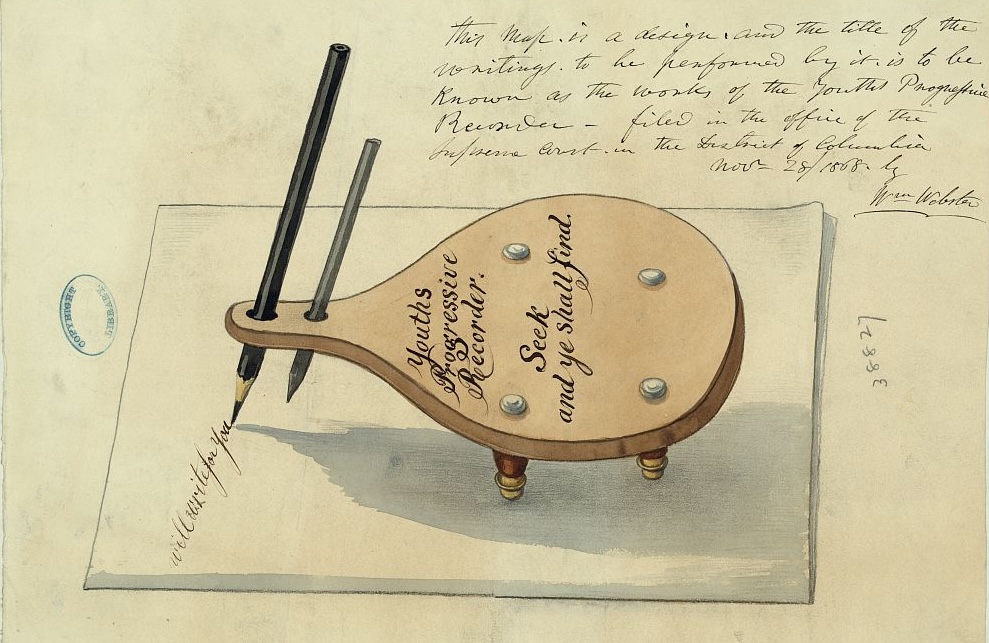 this Map. is a design. and the title of the
writings. to be performed by it. is to be
Known as the works of the Youths Progressive
Recorder – filed in the office of the
Supreme Court. in the District of Columbia
Novr 28/1868. by
Wm Webster
Youths
Progressive
Recorder.
Seek
and ye shall find.
will write for You
COPYRIGHT
LIBRARY
3882/